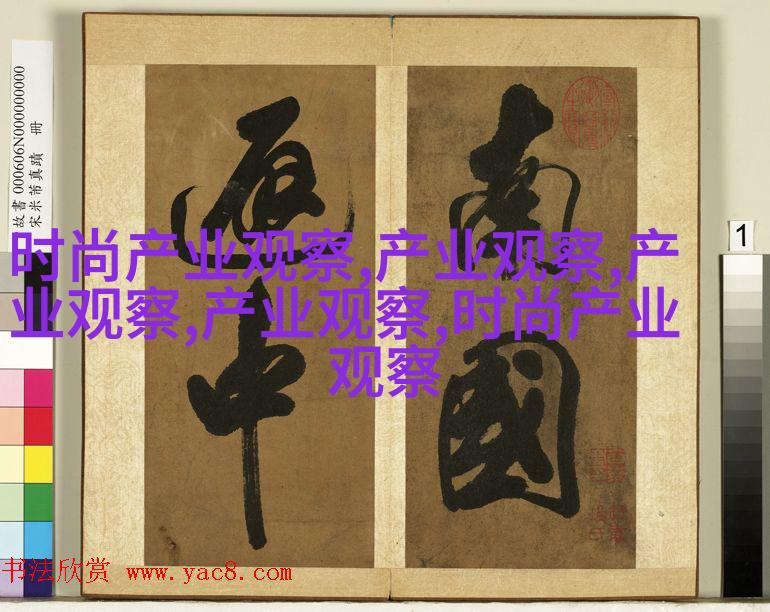 南國
中
时尚产业观察,产业观察,产
业观察,产业观察,时尚产业
观察
故書 000606N000000000
宋米芾真蹟 冊
1
书法欣赏 www.yac8.com